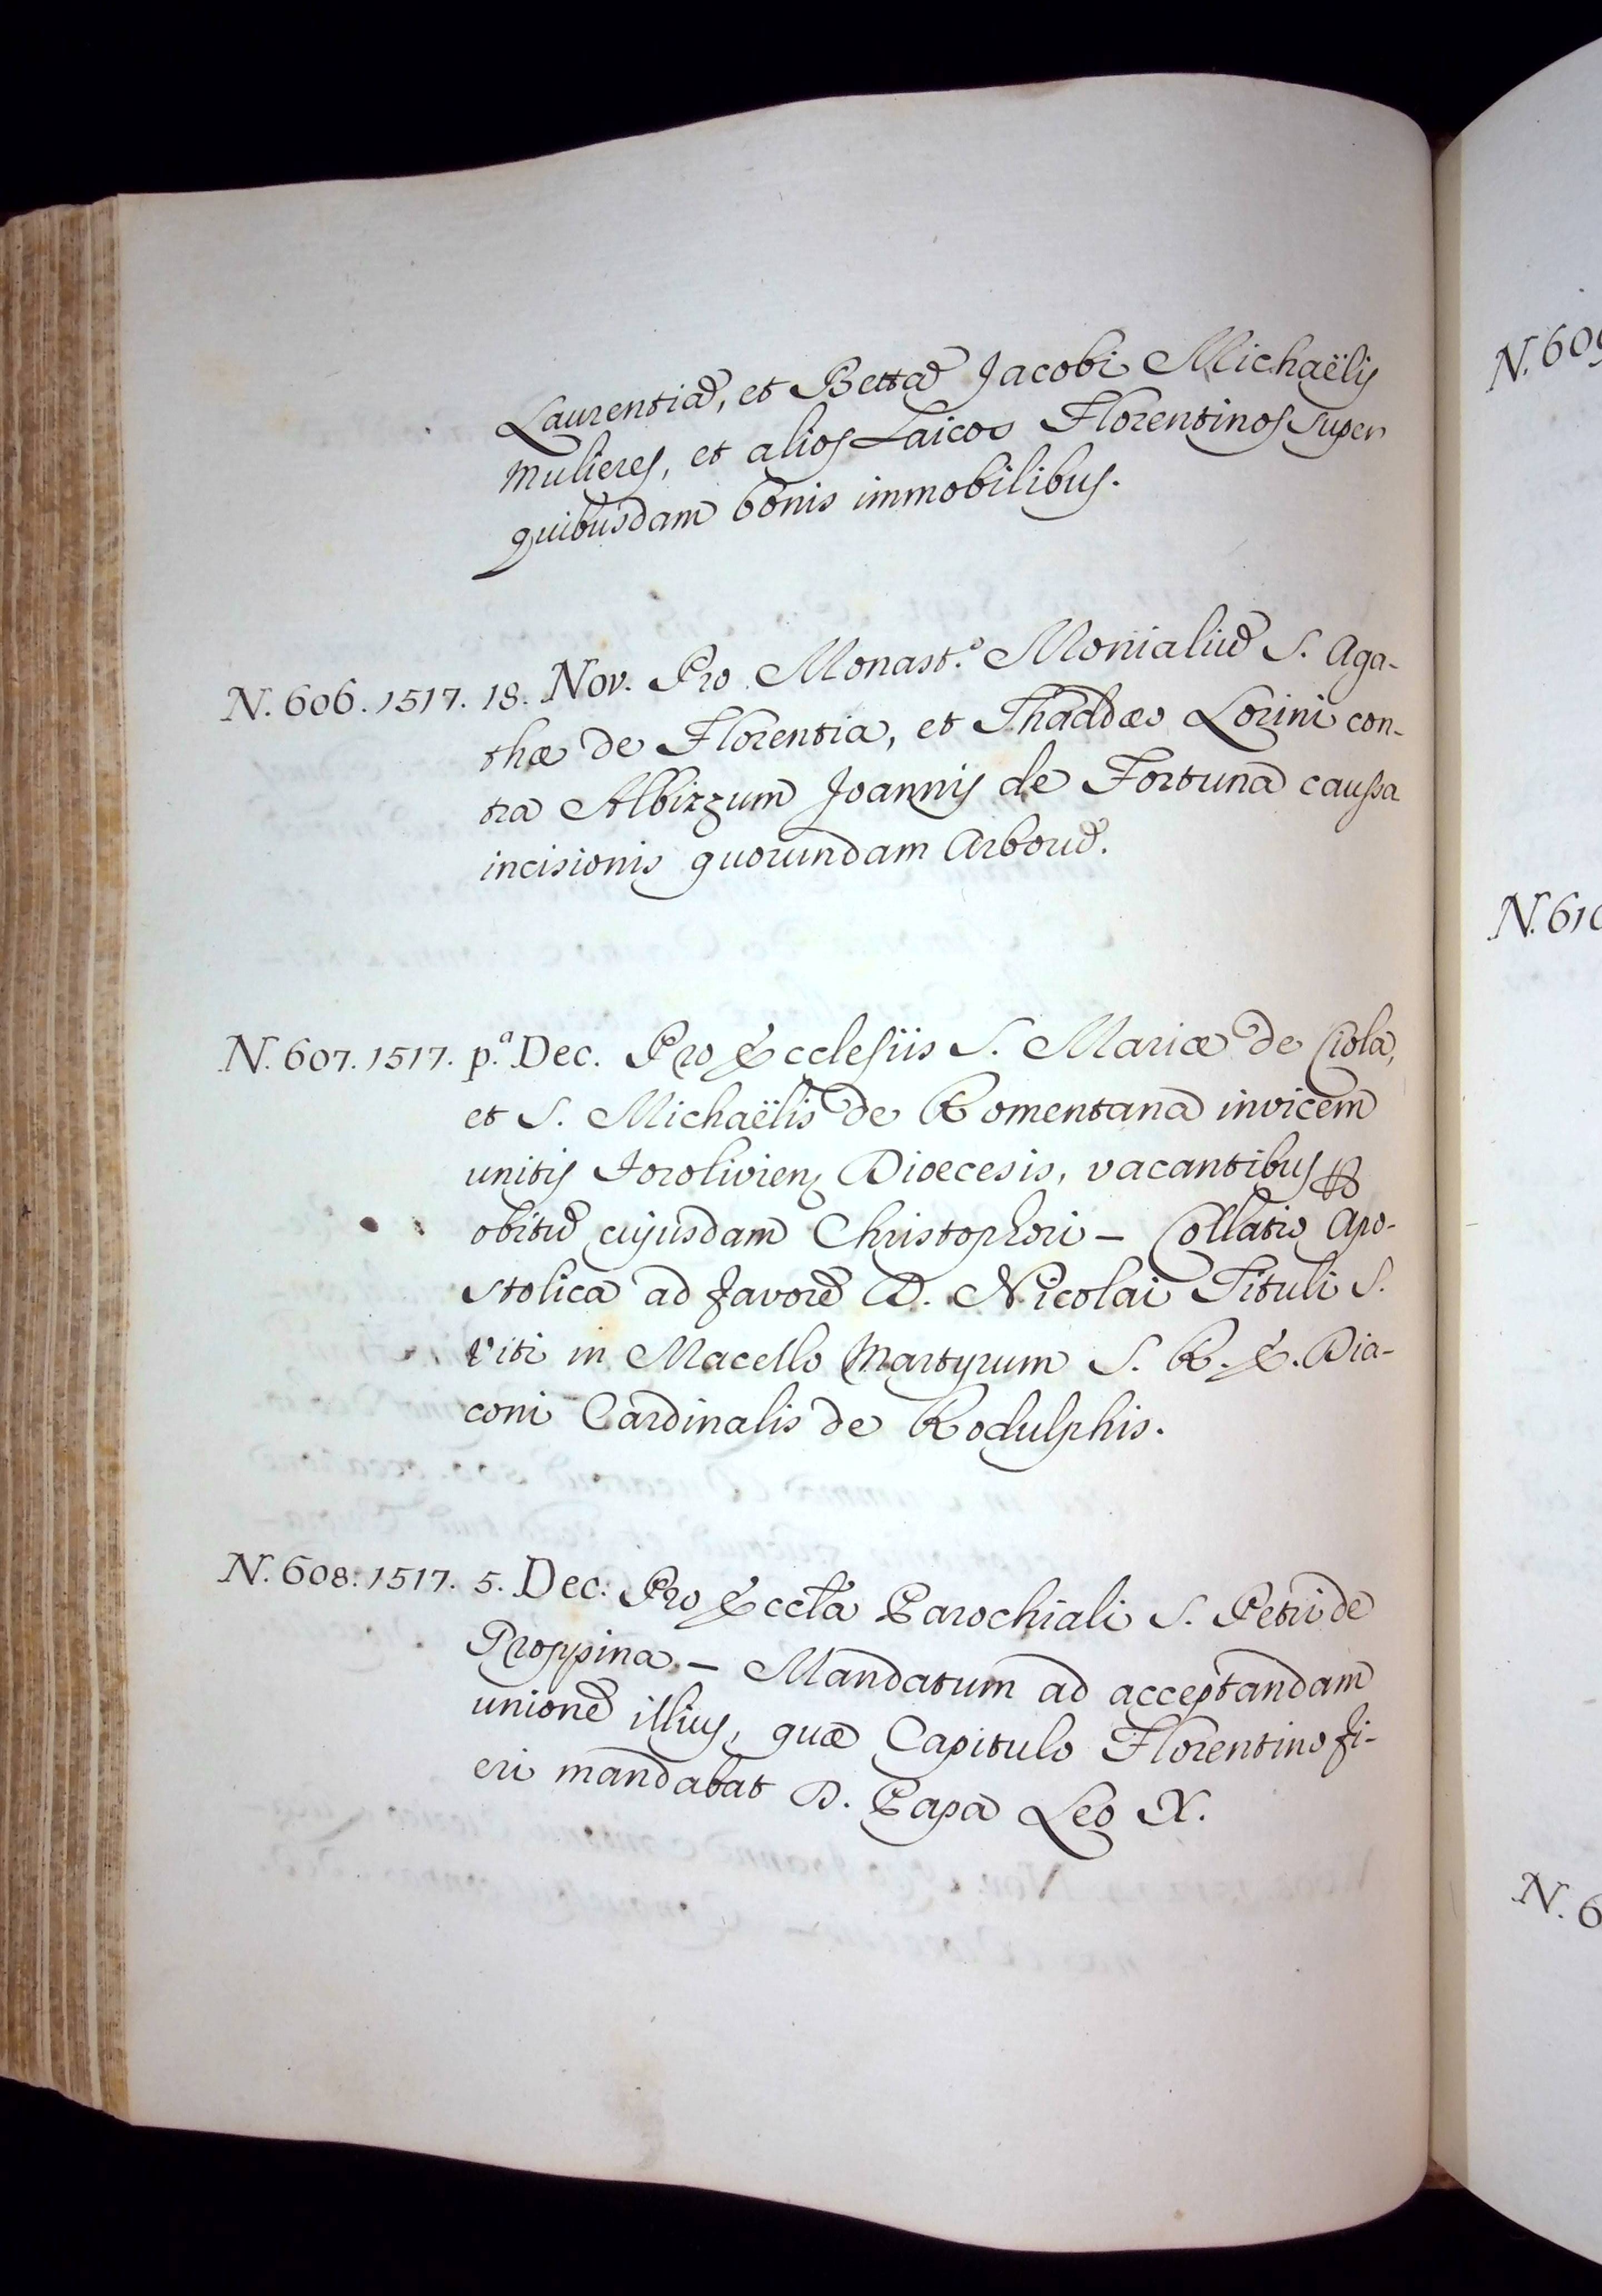 Laurentiã, et Bettã Jacobi Michaëlis
Mulieres, et alios Laicos Florentinos super
quibusdam bonis immobilibus.
N. 606. 1517. 18. Nov. Pro Monast.º Monialiũ S. Aga-
thæ de Florentia, et Thaddæo Lorini con-
tra Albizzum Joannis de Fortuna caussa
incisionis quorundam Arborũ.
N. 607. 1517. p.ª Dec. Pro Ecclesiis S. Mariæ de Ciola,
et S. Michaëlis de Romentana invicem
unitis Forolivien Dioecesis, vacantibus ꝑ
obitũ cujusdam Christophori – Collatio Apo-
stolica ad favorẽ D. Nicolai Tituli S.
Viti in Macello Martyrum S. R. E. Dia-
coni Cardinalis de Rodulphis.
N. 608. 1517. 5. Dec. Pro Eccl̃a Parochiali S. Petri de
Proppina – Mandatum ad acceptandam
unionẽ illius, quæ Capitulo Florentino fi-
eri mandabat D. Papa Leo X.
N. 609
N. 610
N. 6